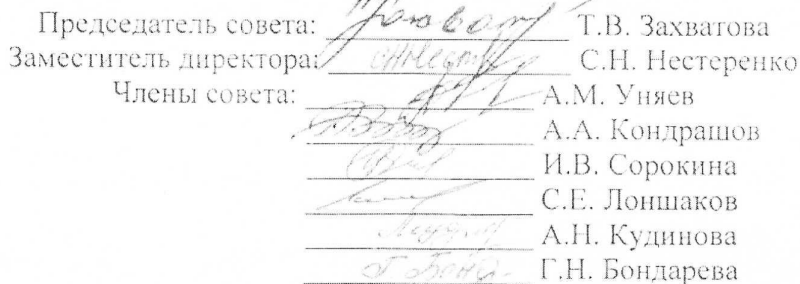 Председатель совета: Т.В. Захватова
Заместитель директора: С.Н. Нестеренко
Члены совета: А.М. Уняев
А.А. Кондрашов
И.В. Сорокина
С.Е. Лоншаков
А.Н. Кудинова
Г.Н. Бондарева